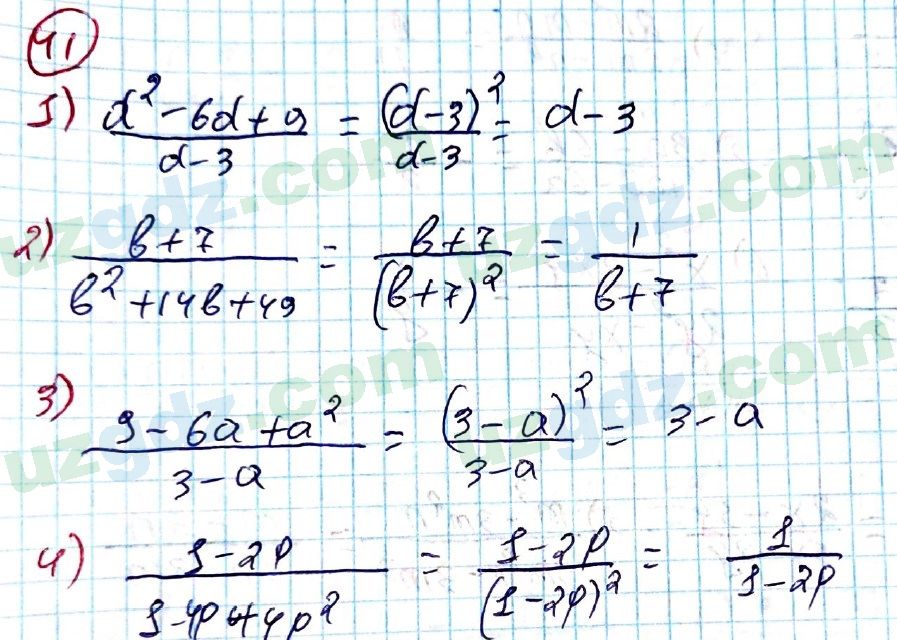 41
1) (d² - 6d + 9)/(d - 3) = (d - 3)²/(d - 3) = d - 3
2) (b + 7)/(b² + 14b + 49) = (b + 7)/(b + 7)² = 1/(b + 7)
3) (9 - 6a + a²)/(3 - a) = (3 - a)²/(3 - a) = 3 - a
4) (1 - 2p)/(1 - 4p + 4p²) = (1 - 2p)/(1 - 2p)² = 1/(1 - 2p)
uzgdz.com
uzgdz.com
uzgdz.com
uzgdz.com